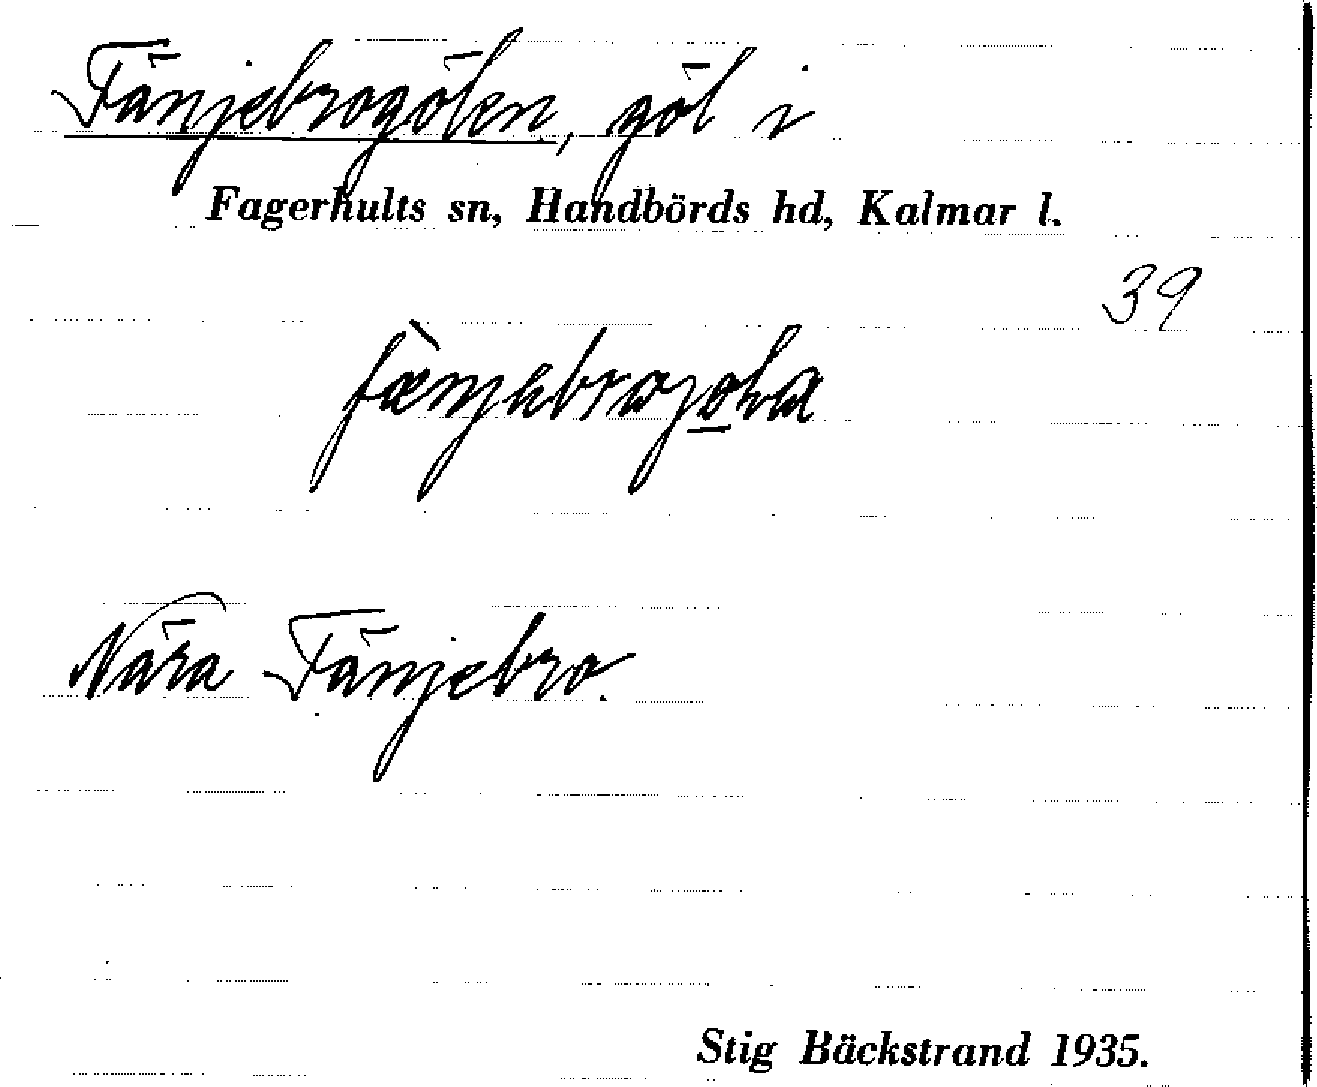 Fänjebrogölen, göl i
Fagerhults sn, Handbörds hd, Kalmar l.
39
Nära Fänjebro.
Stig Bäckstrand 1935.